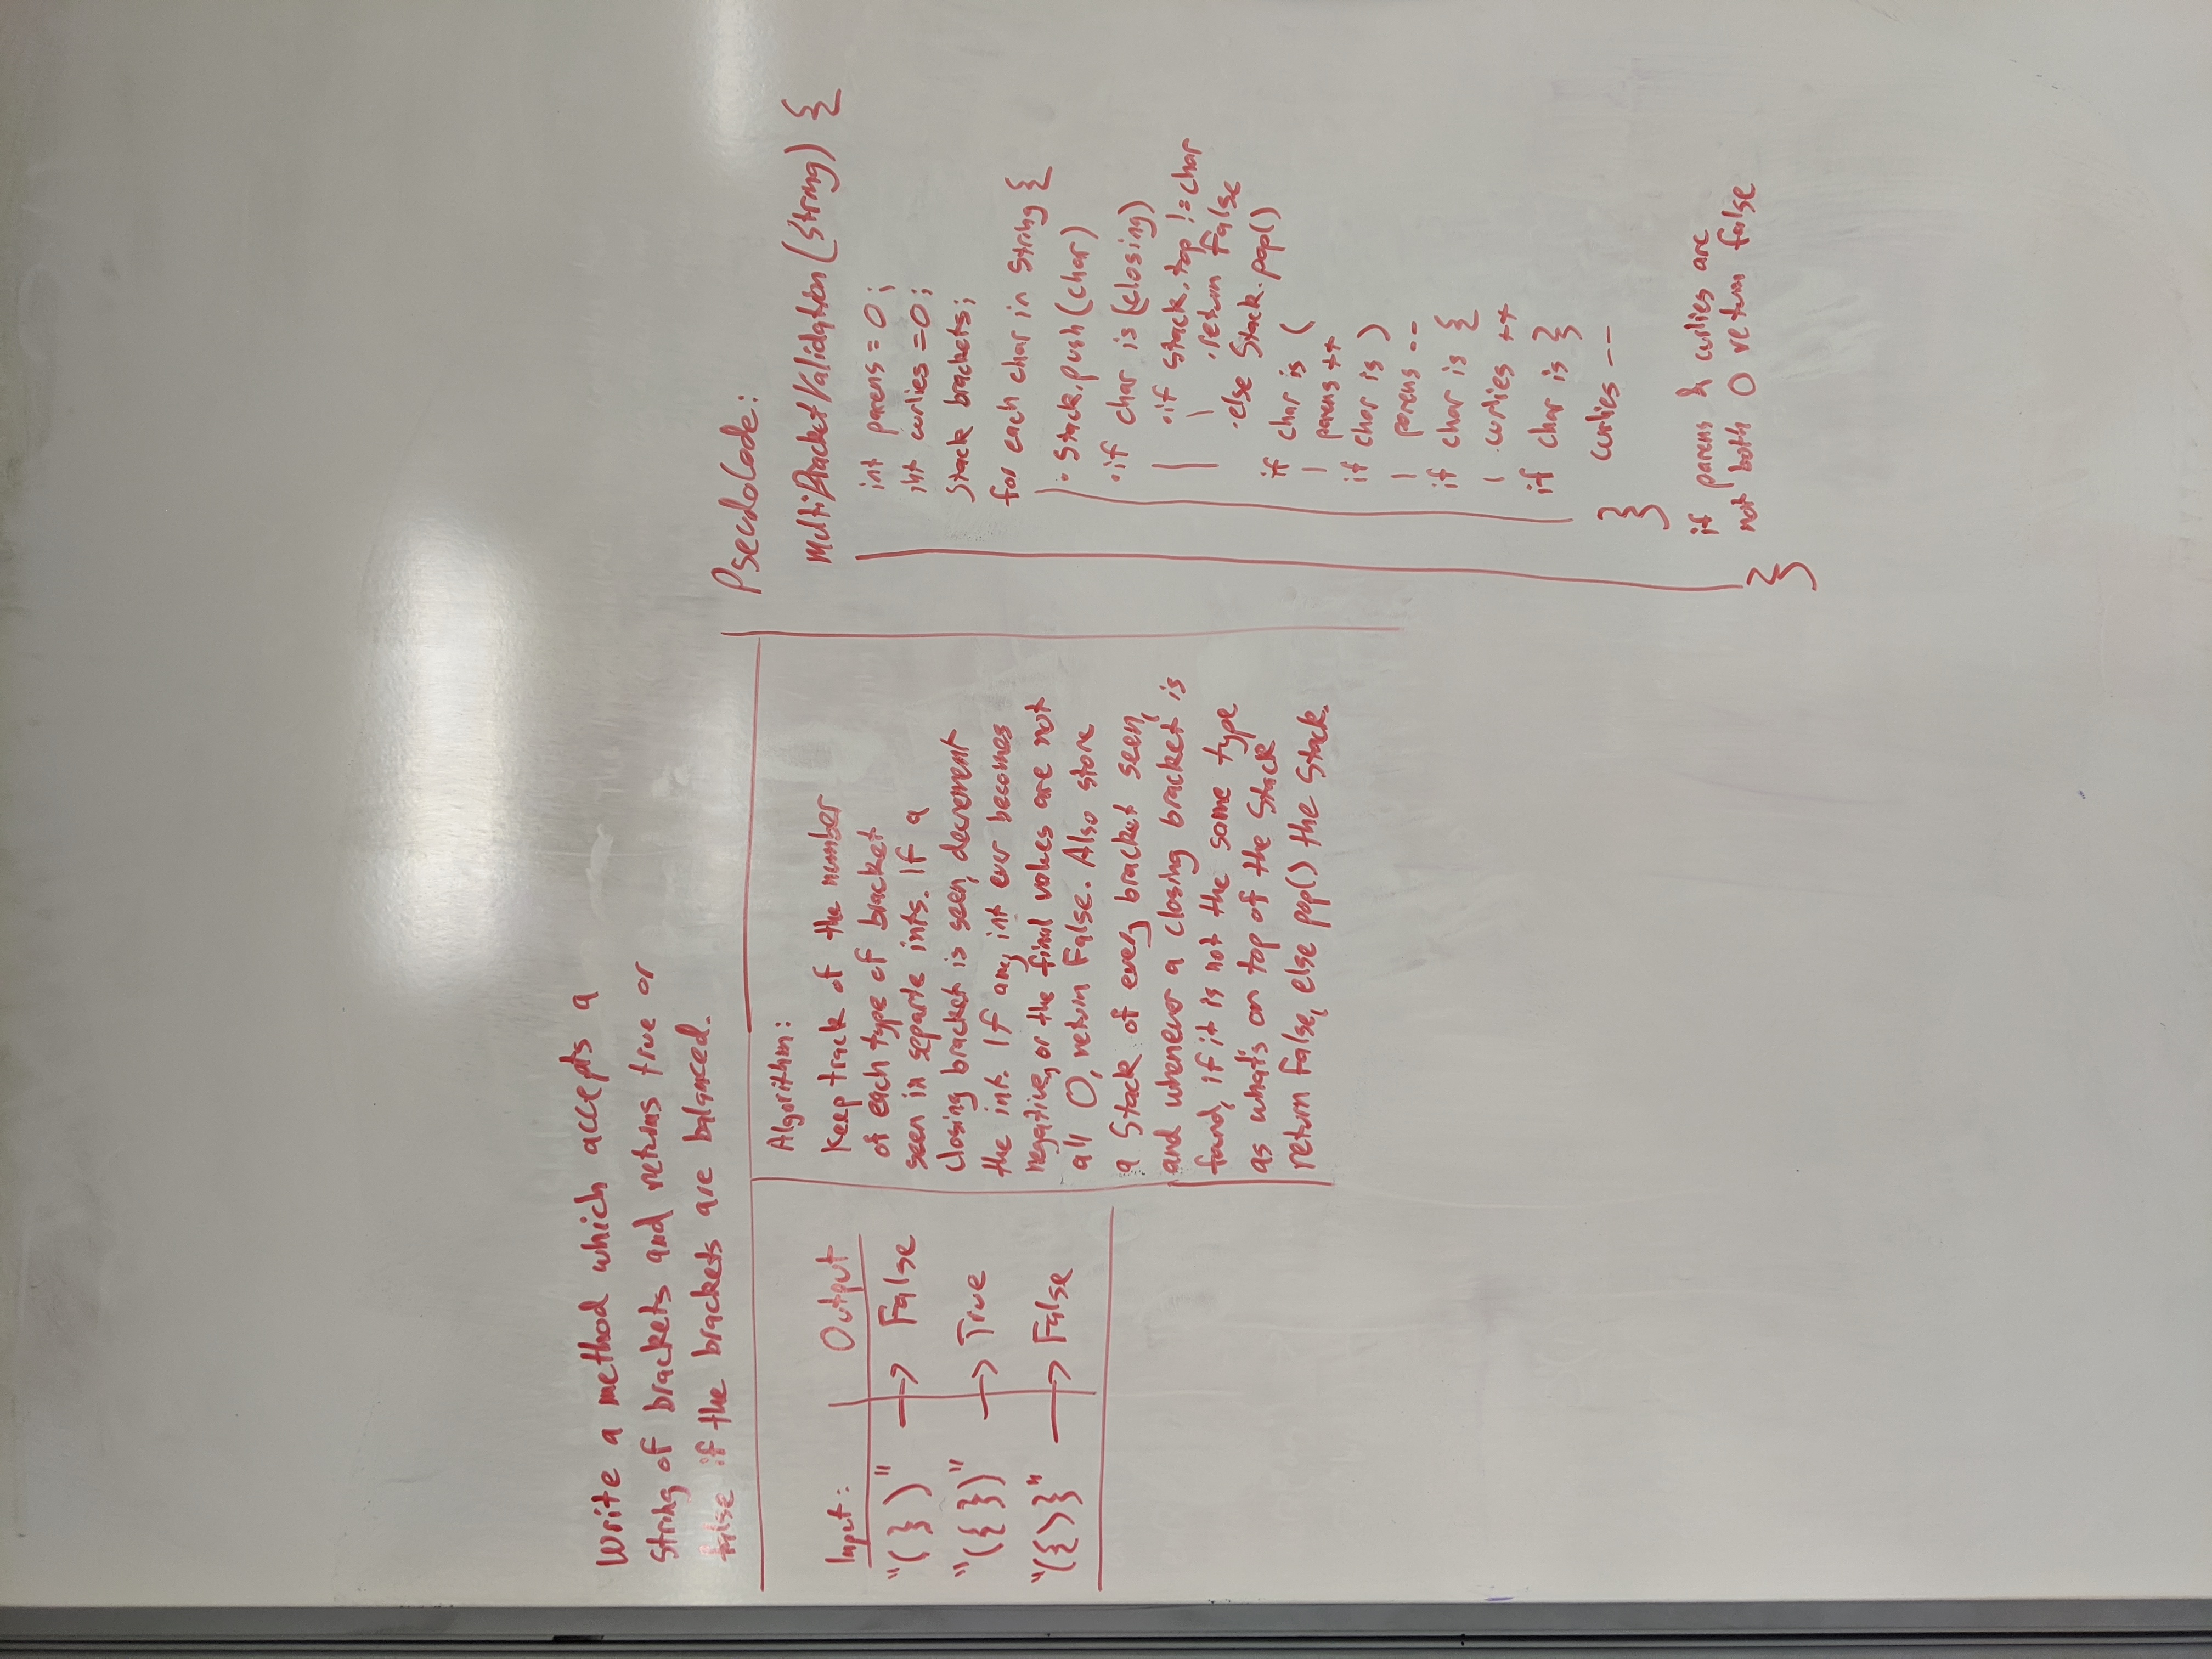 Write a method which accepts a
string of brackets and returns true or
false if the brackets are balanced.
Input: Output
"( } )" → False
"({ })" → True
"({)}" → False
Algorithm:
Keep track of the number
of each type of bracket
seen in separte ints. If a
closing bracket is seen, decrement
the int. If any int ever becomes
negative, or the final values are not
all 0, return False. Also store
a Stack of every bracket seen,
and whenever a closing bracket is
found, if it is not the same type
as what's on top of the Stack
return False, else pop() the Stack.
PseudoCode:
multiBracketValidation (String) {
int parens = 0;
int curlies = 0;
Stack brackets;
for each char in String {
• Stack.push(char)
• if char is (closing)
• if stack.top != char
• return False
• else Stack.pop()
if char is (
parens ++
if char is )
parens --
if char is {
curlies ++
if char is }
curlies --
}
if parens & curlies are
not both 0 return false
}